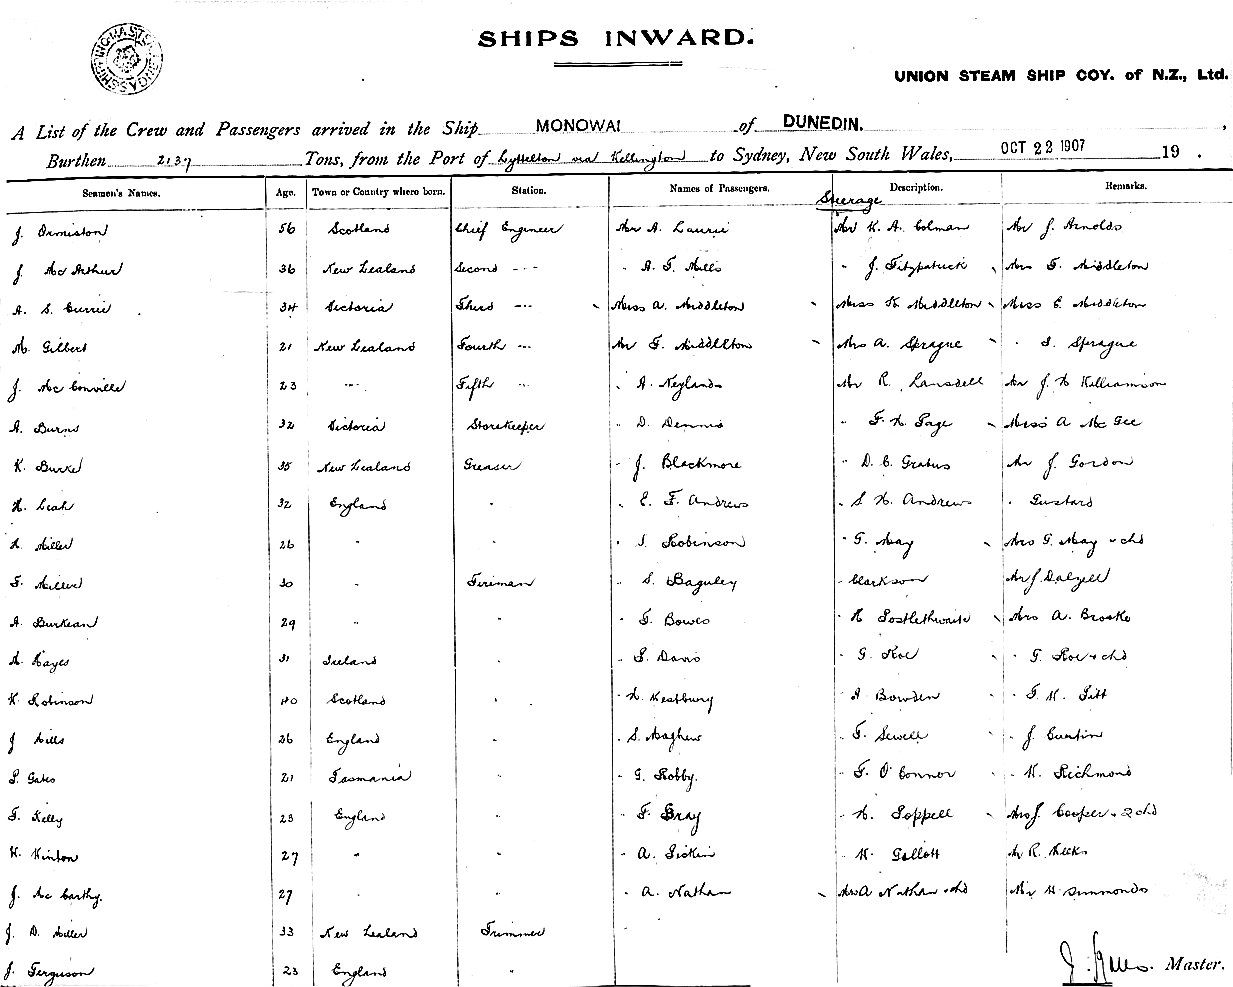 SHIPPING MASTER SYDNEY
SHIPS INWARD.
UNION STEAM SHIP COY. of N.Z., Ltd.
A List of the Crew and Passengers arrived in the Ship MONOWAI of DUNEDIN.,
Burthen 2137 Tons, from the Port of Lyttelton via Wellington to Sydney, New South Wales, OCT 22 1907 19 .
Seamen's Names. Age. Town or Country where born. Station. Names of Passengers. Description. Remarks.
Steerage
J. Ormiston 56 Scotland Chief Engineer Mr A. Laurie Mr K. A. Colman Mr J. Arnolds
J McArthur 36 New Zealand Second --- " A. T. Mills " J. Fitzpatrick Mrs T. Middleton
A. S. Currie 34 Victoria Third --- Miss A. Middleton Miss K Middleton Miss E Middleton
M. Gilbert 21 New Zealand Fourth --- Mr T. Middleton Mrs A. Sprague " S. Sprague
J. McConville 23 --- Fifth --- " A. Neylands Mr R. Lansdell Mr J H Williamson
A. Burns 32 Victoria Storekeeper " D. Dennis " F. H. Page Miss A McGee
W. Burke 35 New Zealand Greaser " J. Blackmore " D. C. Mr J. Gordon
H. Leah 32 England " " E. F. Andrews " S H. Andrews " Gustard
H. Miller 26 " " " J. Robinson " G. May Mrs G. May & chd
T. Miller 30 " Fireman " S. Baguley " Clarkson Mr J. Dalzell
A. Burkean 29 " " " T. Bowes " H Postlethwaite Mrs A. Brooke
H. Hayes 31 Ireland " " S. Davis " G. Roe " G. Roe & chd
W Robinson 40 Scotland " " H. Westbury " A Bowden " T. W. Pitt
J Mills 26 England " " S. Mayhew " T. Sewell " J. Cunlin
P. Gates 21 Tasmania " " G. Robby. " T. O'Connor " W. Richmond
T. Kelly 23 England " " F. Gray " H. Poppell Mrs J. Cooper & 2 chd
W. Winton 27 " " " A. " W. Gollott Mr R. Meeks
J. McCarthy. 27 " " " A. Nathan Mrs A Nathan & chd Mr H Simmonds
J. D. Miller 33 New Zealand Trimmer
J. Ferguson 23 England "
Master.